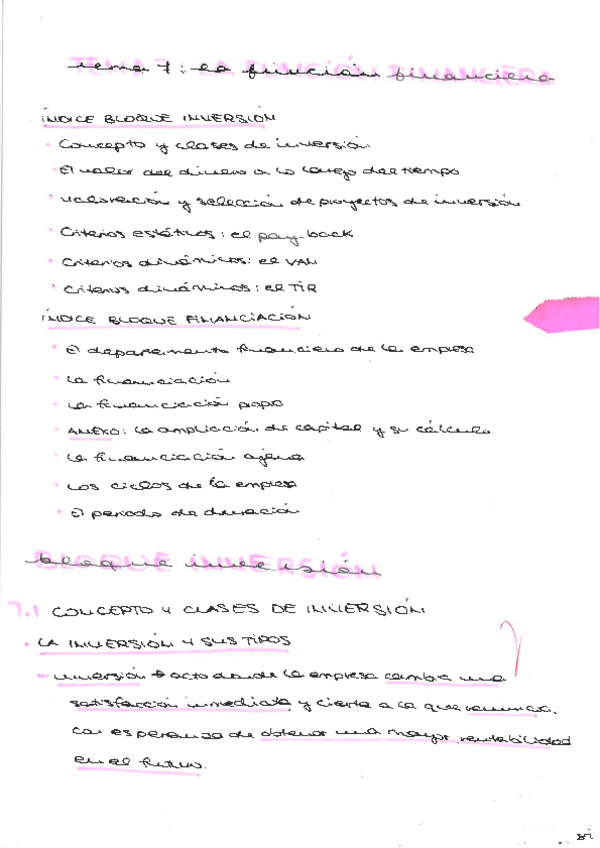 tema 7: la función financiera
ÍNDICE BLOQUE INVERSIÓN
Concepto y clases de inversión
El valor del dinero a lo largo del tiempo
valoración y selección de proyectos de inversión
Criterios estáticos: el pay-back
Criterios dinámicos: el VAN
Criterios dinámicos: el TIR
ÍNDICE BLOQUE FINANCIACIÓN
El departamento financiero de la empresa
La financiación
La financiación propia
ANEXO: La ampliación de capital y su cálculo
La financiación ajena
Los ciclos de la empresa
El periodo de duración
bloque inversión
7.1 CONCEPTO Y CLASES DE INVERSIÓN
LA INVERSIÓN Y SUS TIPOS
inversión → acto donde la empresa cambia una
satisfacción inmediata y cierta a la que renuncia,
con esperanza de obtener una mayor rentabilidad
en el futuro.